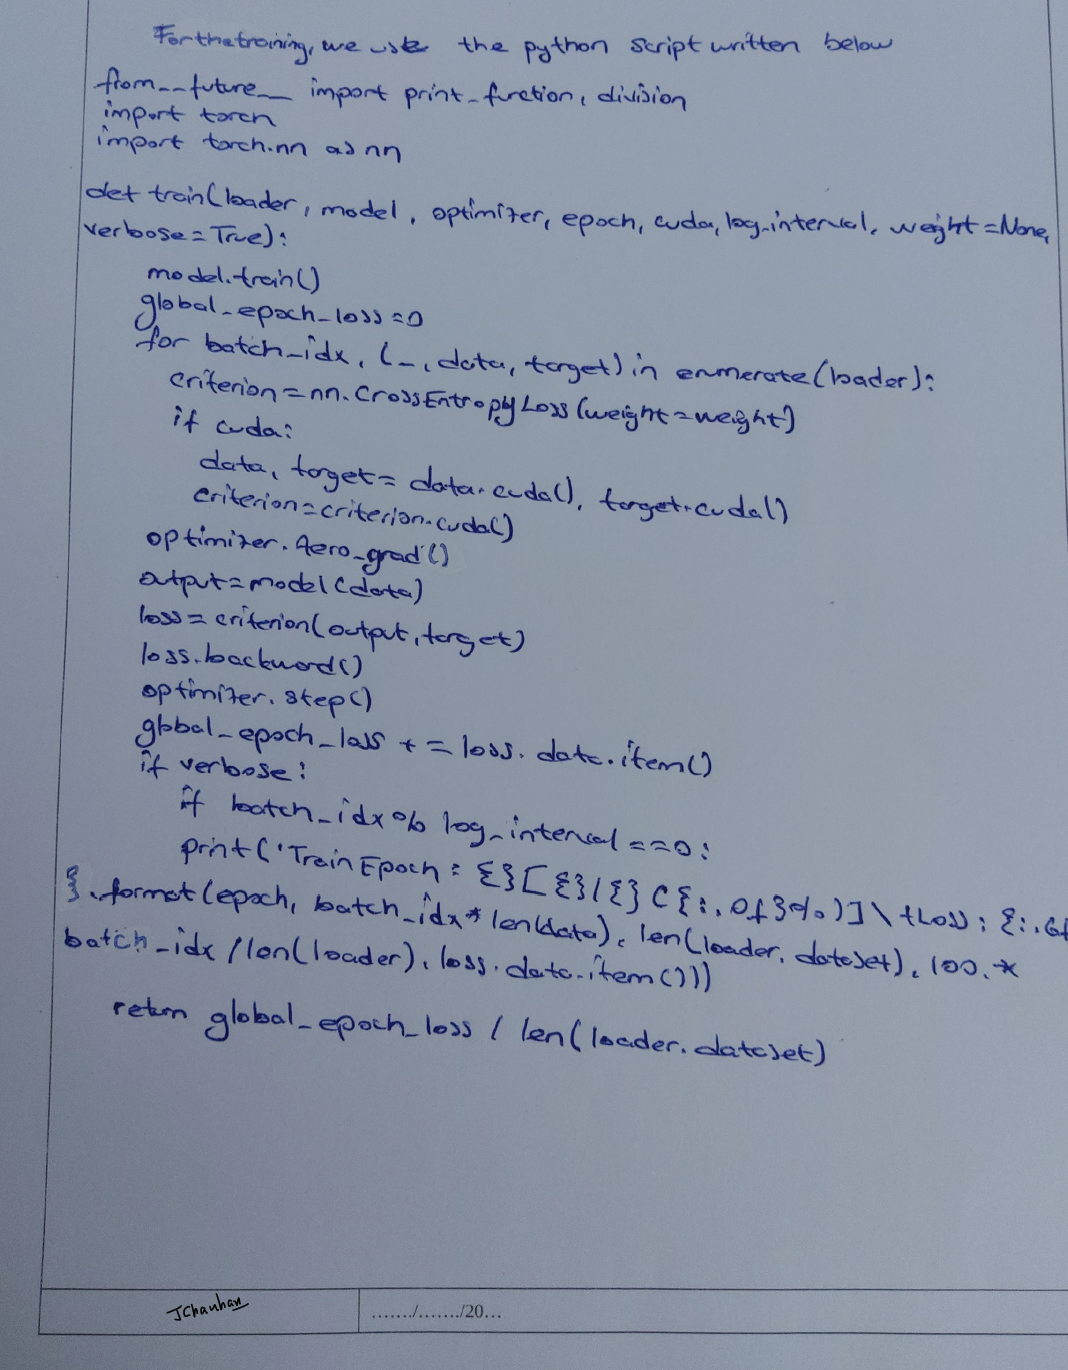 For the training, we use the python script written below
from __future__ import print_function, division
import torch
import torch.nn as nn
def train(loader, model, optimizer, epoch, cuda, log_interval, weight=None,
verbose=True):
model.train()
global_epoch_loss=0
for batch_idx, (_, data, target) in enumerate(loader):
criterion=nn.CrossEntropyLoss(weight=weight)
if cuda:
data, target= data.cuda(), target.cuda()
criterion=criterion.cuda()
optimizer.zero_grad()
output=model(data)
loss=criterion(output,target)
loss.backward()
optimizer.step()
global_epoch_loss += loss.data.item()
if verbose:
if batch_idx % log_interval ==0:
print('Train Epoch: {}[{}/{} ({:.0f}%)]\tLoss: {:.6f
}.format(epoch, batch_idx*len(data), len(loader.dataset), 100.*
batch_idx /len(loader), loss.data.item()))
return global_epoch_loss / len(loader.dataset)
JChauhan
......./......./20...